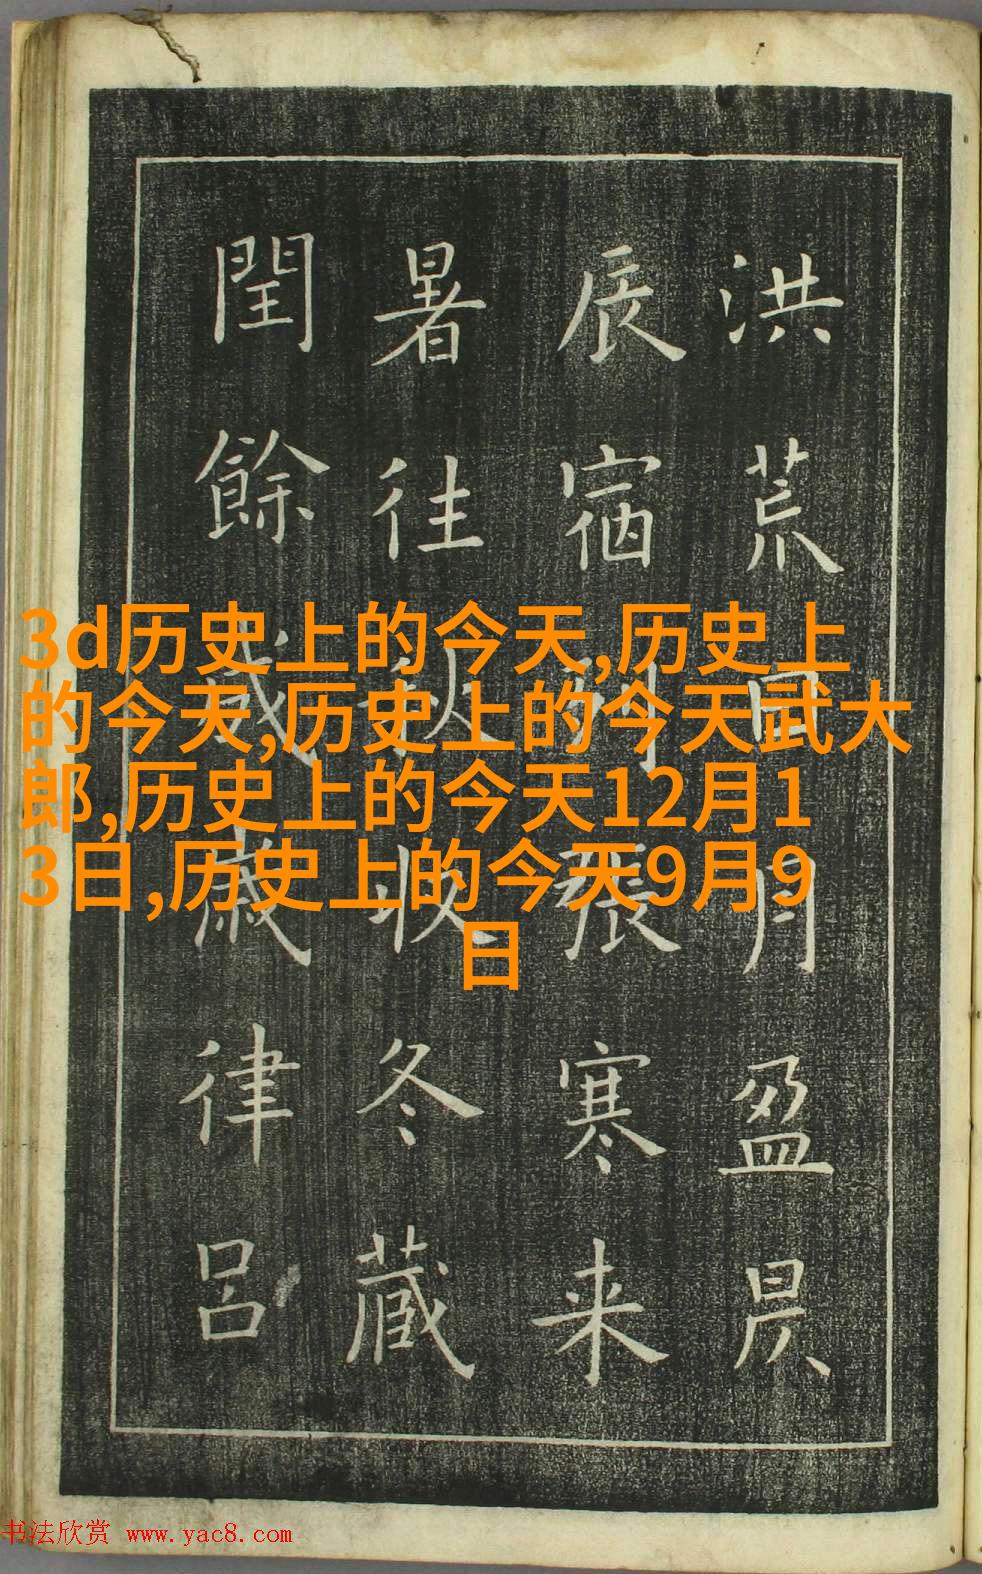 洪荒日月盈昃
辰宿列張寒来
暑往秋收冬藏
閏餘成歲律呂
3d历史上的今天,历史上
的今天,历史上的今天武大
郎,历史上的今天12月1
3日,历史上的今天9月9
日
书法欣赏 www.yac8.com